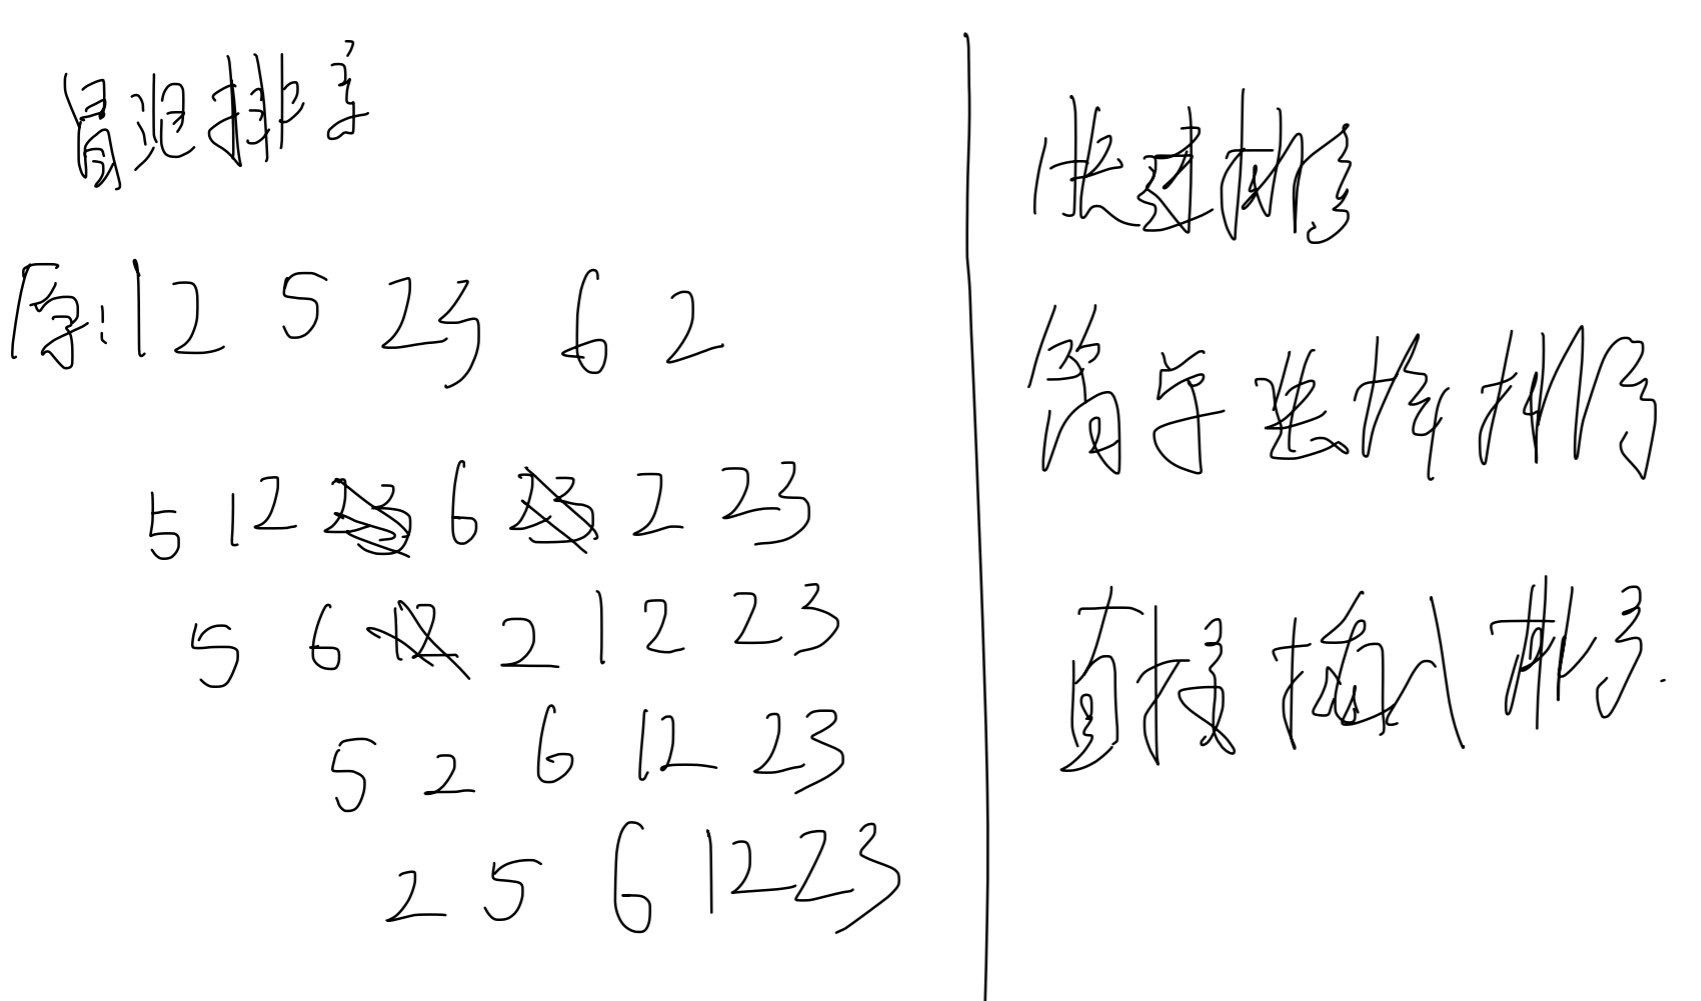 冒泡排序
原:12 5 23 6 2
5 12 6 2 23
5 6 2 12 23
5 2 6 12 23
2 5 6 12 23
快速排序
简单选择排序
直接插入排序.